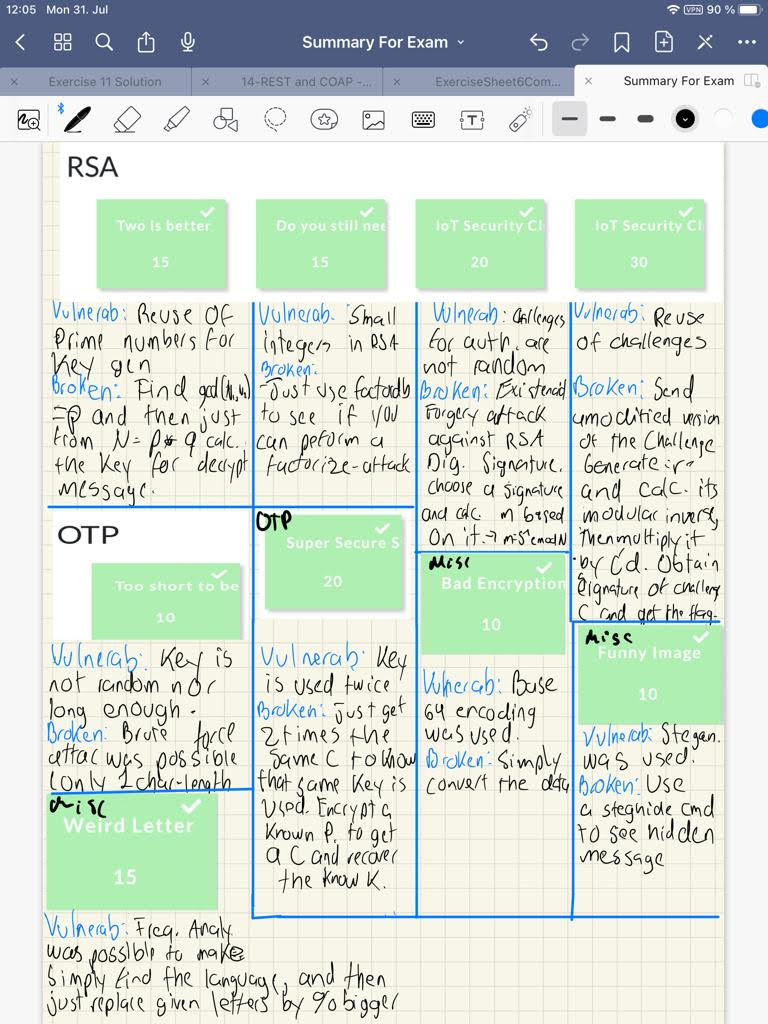 12:05 Mon 31. Jul
VPN 90 %
Summary For Exam
Exercise 11 Solution
14-REST and COAP -...
ExerciseSheet6Com...
Summary For Exam
RSA
Two is better
15
Do you still nee
15
IoT Security Cl
20
IoT Security Cl
30
Vulnerab: Reuse OF
Prime numbers For
Key gen
Broken: Find gcd(N1,N2)
=p and then just
from N = p * q calc.
the Key for decrypt
message.
Vulnerab. Small
integers in RSA
Broken:
Just use factordb
to see if you
can peform a
factorize-attack
Vulnerab: Challenges
For auth. are
not random
Broken: Existencial
Forgery attack
against RSA
Dig. Signature.
choose a signature
and calc. m based
On it. → m=S^e mod N
Vulnerab: Reuse
of challenges
Broken: Send
a modified version
Of the Challenge
Generate r
and calc. its
modular inverse,
Then multiply it
by C'd. Obtain
signature of challeng
C and get the flag.
OTP
Too short to be
10
Vulnerab: Key is
not random nor
long enough.
Broken: Brute force
attac was possible
(only 1 char-length
OTP
Super Secure S
20
Vulnerab: Key
is used twice
Broken: Just get
2 times the
same C to know
that same Key is
Used. Encrypt a
Known P. to get
a C and recover
the know K.
Misc
Bad Encryption
10
Vulnerab: Base
64 encoding
was used.
Broken: Simply
convert the data
Misc
Funny Image
10
Vulnerab: Stegan.
was used.
Broken: Use
a steghide cmd
to see hidden
message
Misc
Weird Letter
15
Vulnerab: Freq. Analy.
was possible to make
Simply find the language, and then
just replace given letters by % bigger